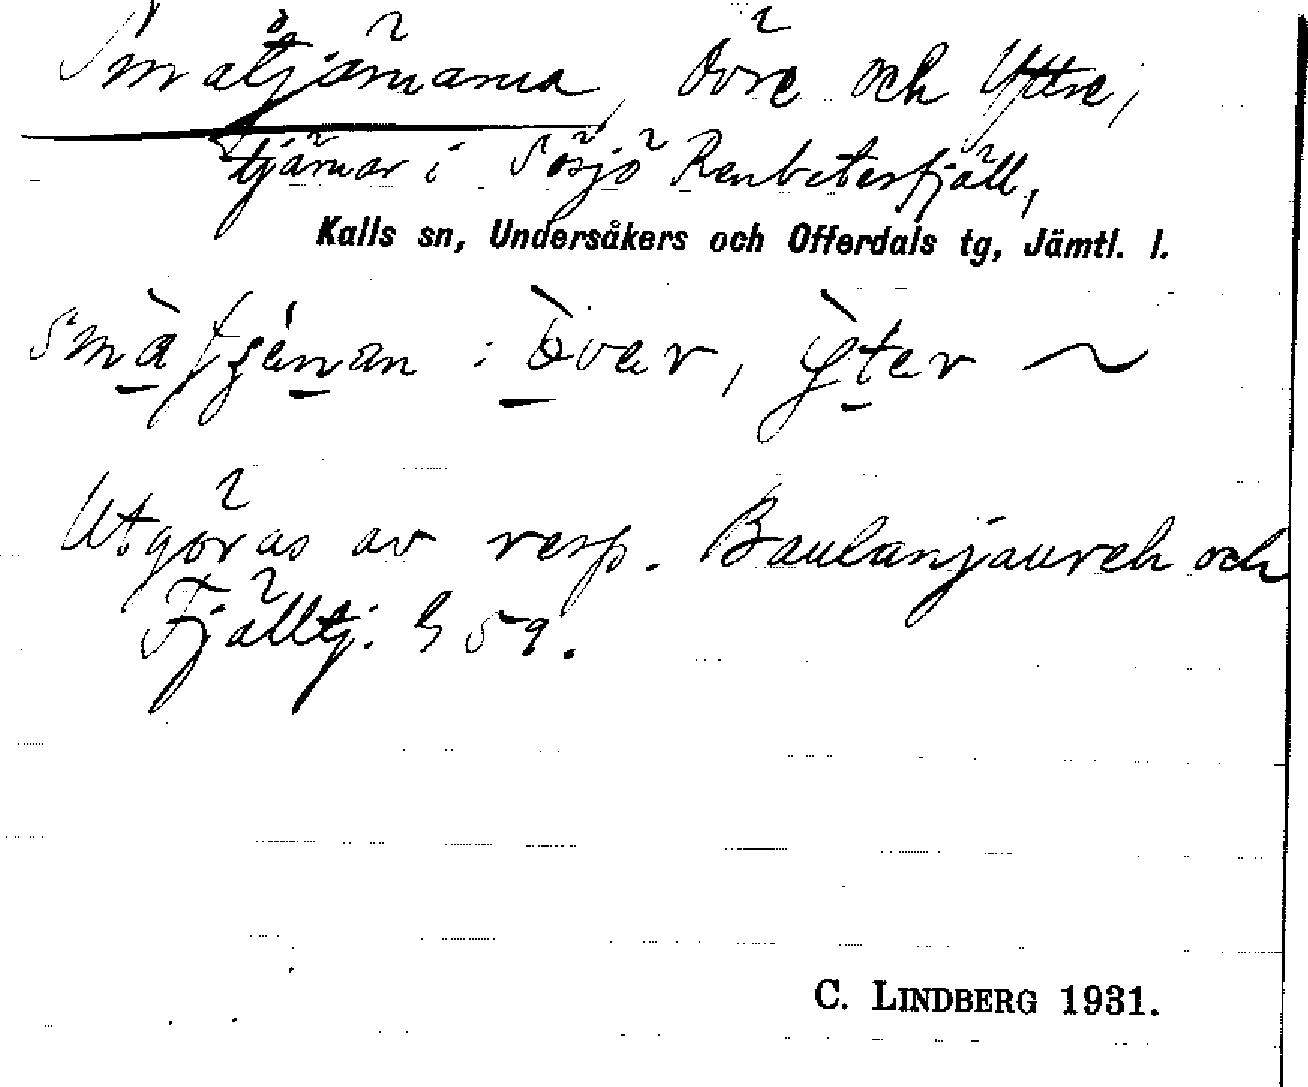 Småtjärnarna, Övre och Yttre,
tjärnar i Sösjö Renbetesfjäll,
Kalls sn, Undersåkers och Offerdals tg, Jämtl. l.
: över, yter ~
Utgöras av resp. Baulanjaureh och
Fjälltj. § 59.
C. LINDBERG 1931.